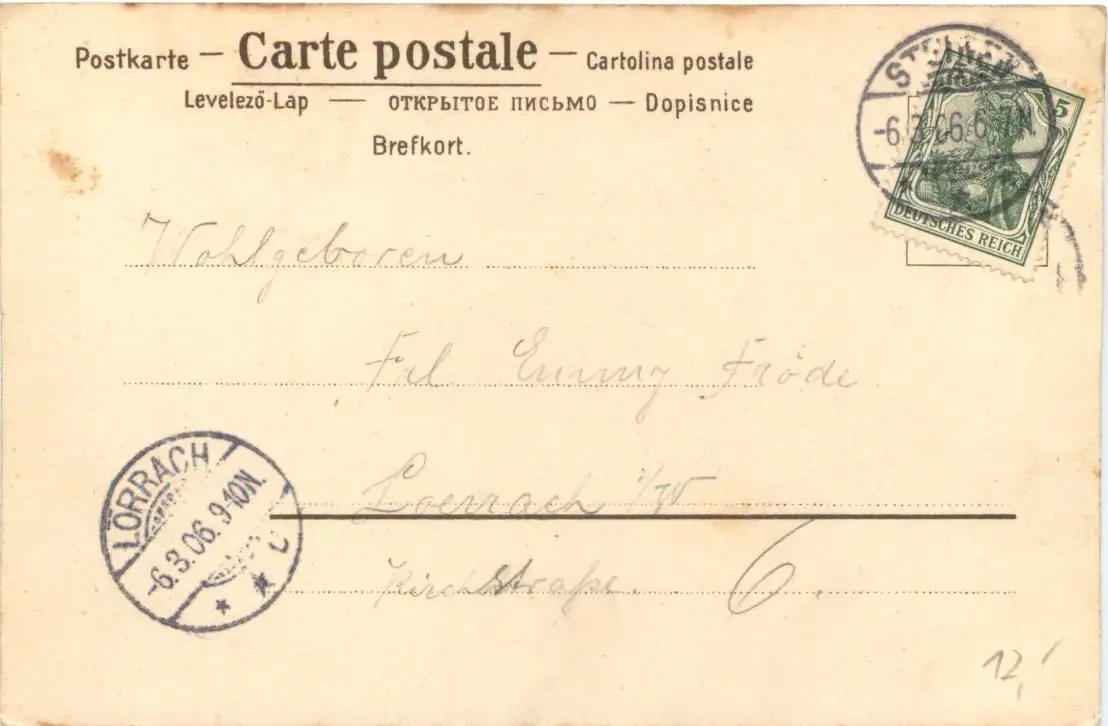 Postkarte — Carte postale — Cartolina postale
Levelező-Lap — ОТКРЫТОЕ ПИСЬМО — Dopisnice
Brefkort.
5
-6.3.06.6-7N
DEUTSCHES REICH
Wohlgeboren
Frl Emmy Fröde
Loerrach i/W
Kirchstraße. 6.
LÖRRACH
-6.3.06.9-10N.
C
12,